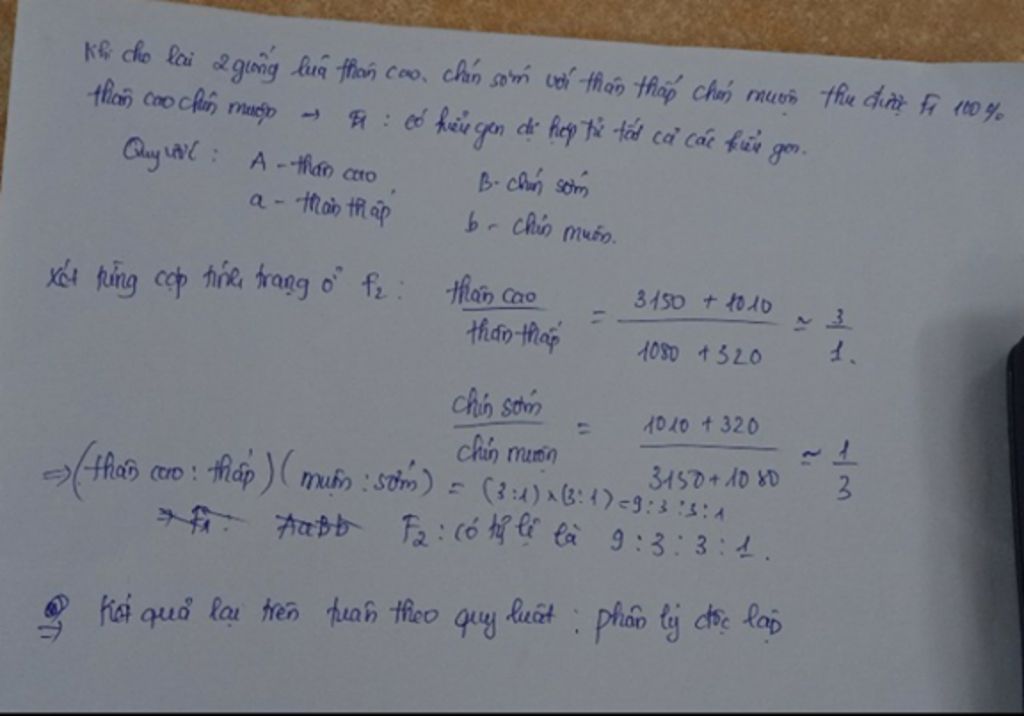 Khi cho lai 2 giống lúa thân cao, chín sớm với thân thấp chín muộn thu được F1 100%
thân cao chín muộn → F1 : có kiểu gen dị hợp tử tất cả các kiểu gen.
Quy ước : A - thân cao B - chín sớm
a - thân thấp b - chín muộn.
Xét từng cặp tính trạng ở F2 : thân cao / thân thấp = 3150 + 1010 / 1080 + 320 ≃ 3 / 1.
chín sớm / chín muộn = 1010 + 320 / 3150 + 1080 ≃ 1 / 3
=> (thân cao : thấp) (muộn : sớm) = (3:1) x (3:1) = 9:3:3:1
=> F1 : AaBb F2 : có tỷ lệ là 9 : 3 : 3 : 1.
=> Kết quả lai trên tuân theo quy luật : phân lý độc lập